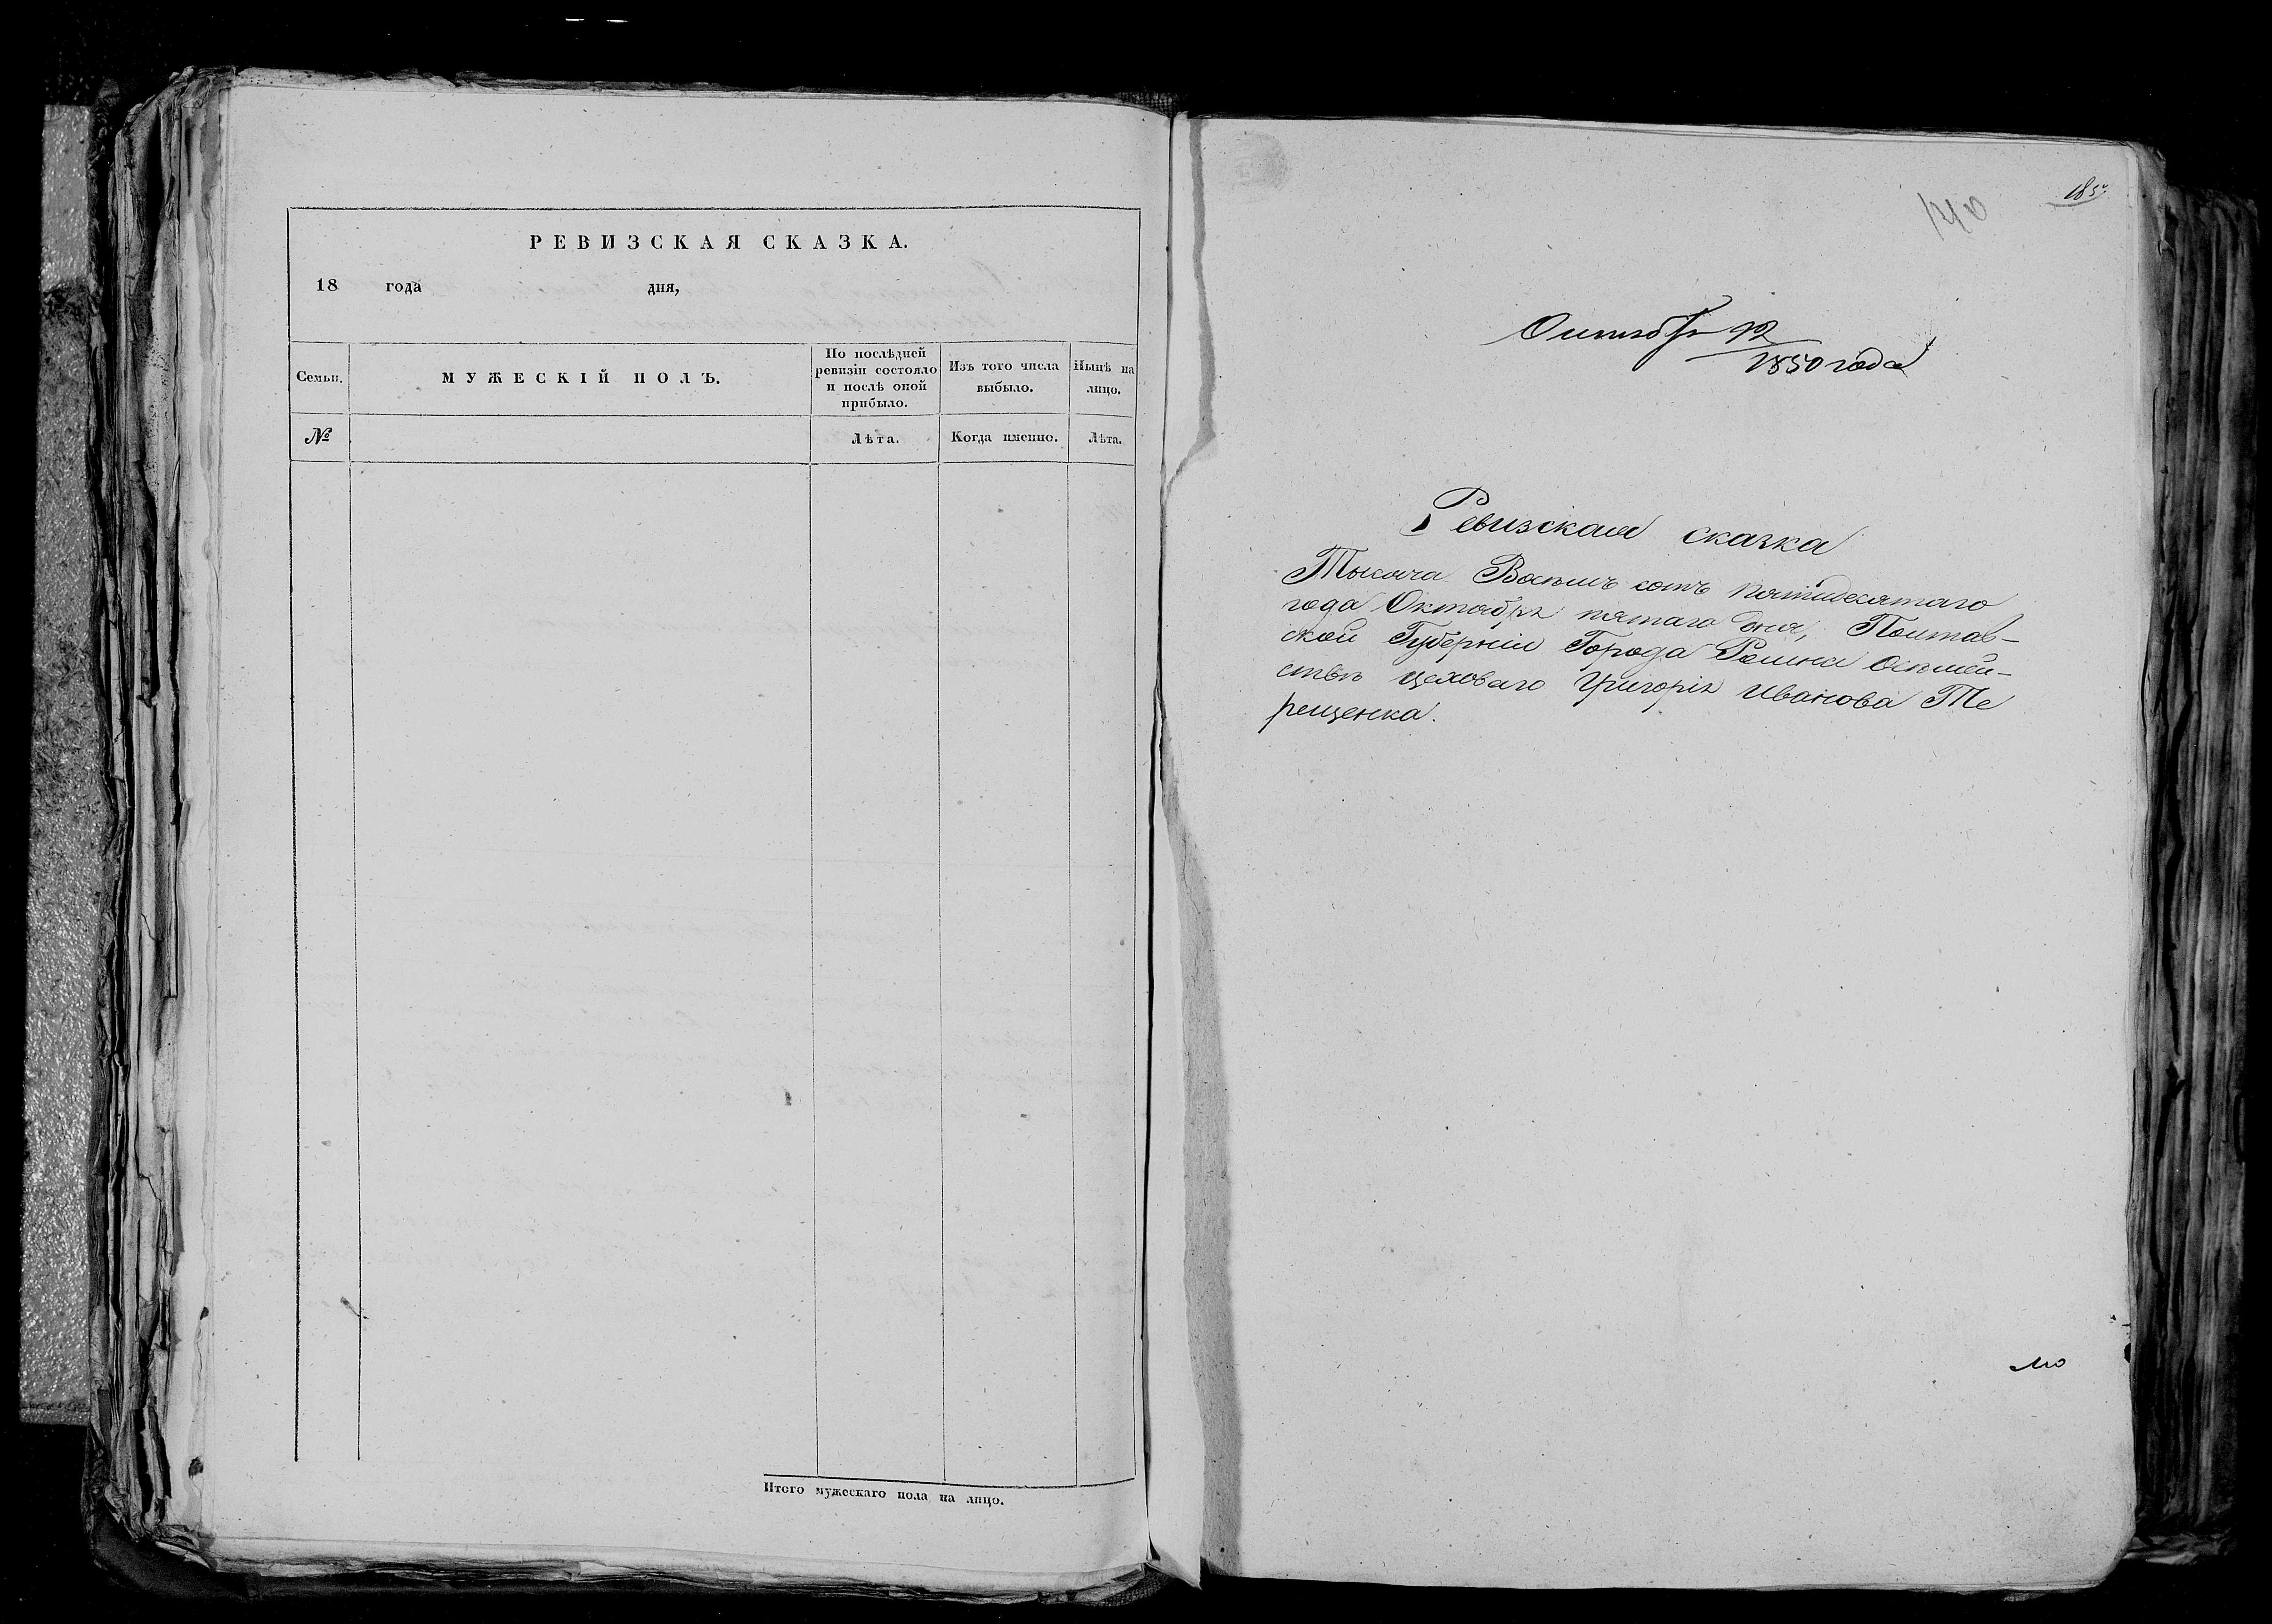 РЕВИЗСКАЯ СКАЗКА.
18 года дня,
Семьи.
МУЖЕСКІЙ ПОЛЪ.
По послѣдней
ревизіи состояло
и послѣ оной
прибыло.
Изъ того числа
выбыло.
Нынѣ на
лицо.
№
Лѣта.
Когда именно.
Лѣта.
Итого мужескаго пола на лицо.
140
Октября 12
1850 года
Ревизская сказка
Тысяча Восемь сотъ пятидесятаго
года Октября пятаго дня, Полтав-
ской Губерніи Города Ромна
цеховаго Григорія Иванова Те
рещенка.